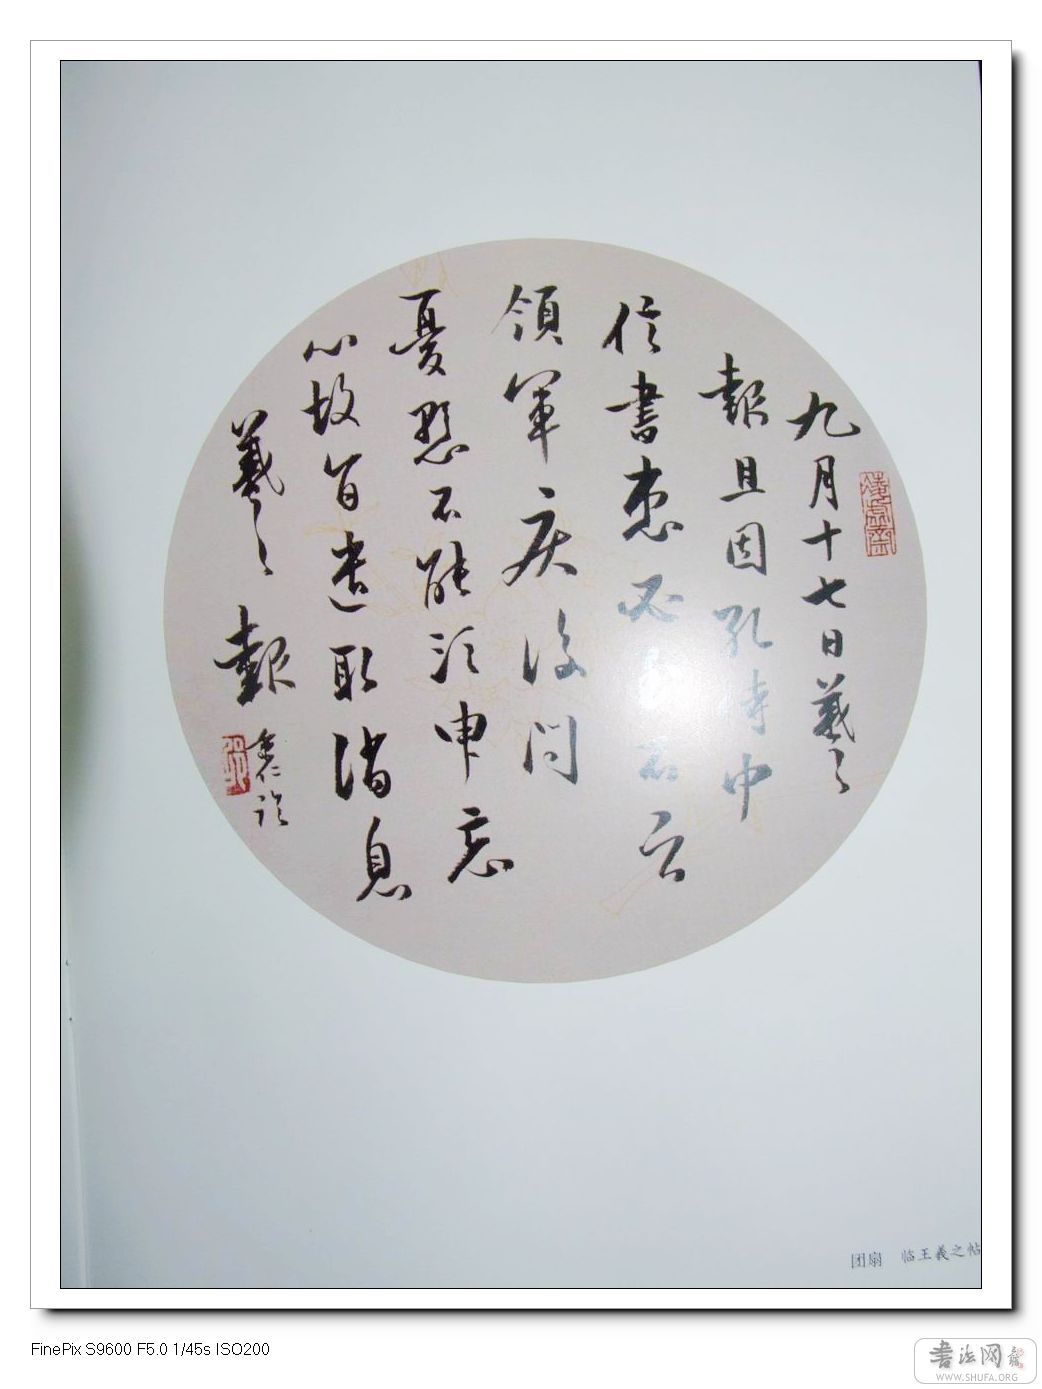 九月十七日羲之
報且因孔侍中
信書想必至不云
領軍疾後問
憂懸不能須申忘
心故旨遣取消息
羲之報
团扇 临王羲之帖
FinePix S9600 F5.0 1/45s ISO200
書法网
WWW.SHUFA.ORG